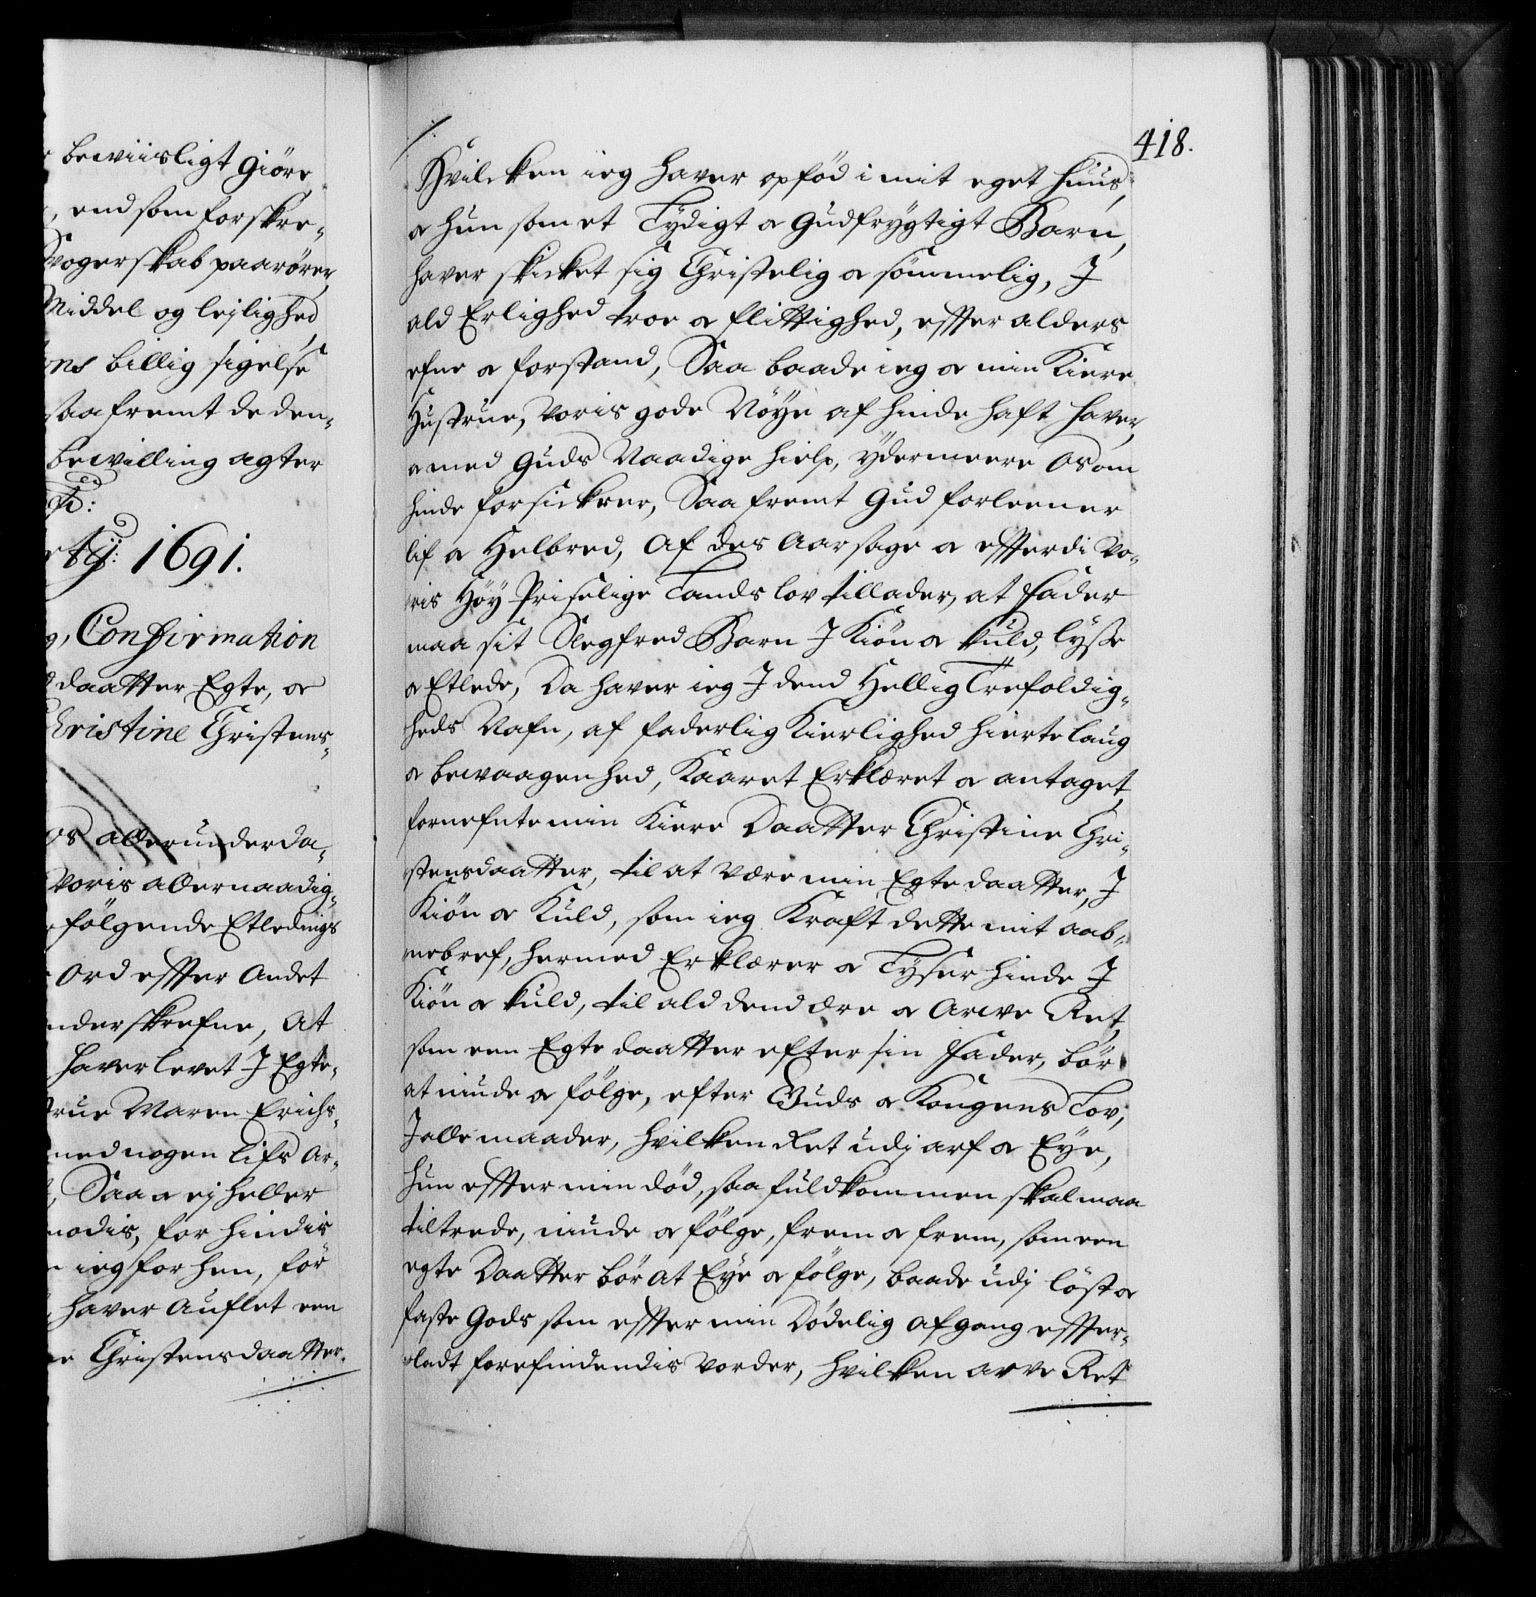 beviisligt giøre
, end som forskre-
Svogerskab paarører,
Middel og lejlighed
billig sigelse
saafremt de den-
bevilling agter
1691.
Confirmation
daatter Egte, &
Christine Christens-
os allerunderda-
Voris allernaadig-
følgende Etlednigs
Ord effter Andet
underskrefne, At
haver levet J Egte-
Hustrue Maren Erichs-
med nogen lifs Ar-
Saa & ej heller
for hindis
ieg for hen, for
haver Auflet een
Christensdaatter.
418.
Hvilcken ieg haver opfød i mit eget huus,
& hun som et Lydigt & Gudfrygtigt Barn,
haver skicket sig Christelig & sømmelig, J
ald Erlighed troe & flittighed, effter alders
efne & forstand, Saa baade ieg & min Kiere
Hustrue, Voris gode Nøye af hinde haft haver,
& med Guds Naadige hielp, ydermeere Os om
hinde forsickrer, Saa fremt Gud forleener
lif & Helbred, Af des Aarsage & effterdi Vo-
ris Høy Priselige Lands lov tillader, at fader
maa sit Slegfred Barn J Kiøn & kuld, lyse
& Etlede, Da haver ieg J dend Hellig Trefoldig-
heds Nafn, af faderlig Kierlighed hiertelaug
& bevaagenhed, Kaaret Erklæret & antaget,
fornefnte min Kiere Daatter Christine Chri-
stensdaatter, til at være min Egte daatter, J
Kiøn & Kuld, som ieg Kraft dette mit aab-
nebref, hermed Erklærer & Lyser hinde J
Kiøn & kuld, til ald dend ære & Arve Ret,
som een Egte daatter efter sin fader, bør
at niude & følge, efter Guds & Kongens Lov,
J alle maader, hvilken Ret udj arf & Eye,
hun effter min død, saa fuldkommen skal maa
tiltrede, niude & følge, frem & frem, som een
egte Daatter bør at Eye & følge, baade udj løst &
faste Gods som effter min Dødelig afgang effter-
ladt forefindendis vorder, hvilken arve Ret